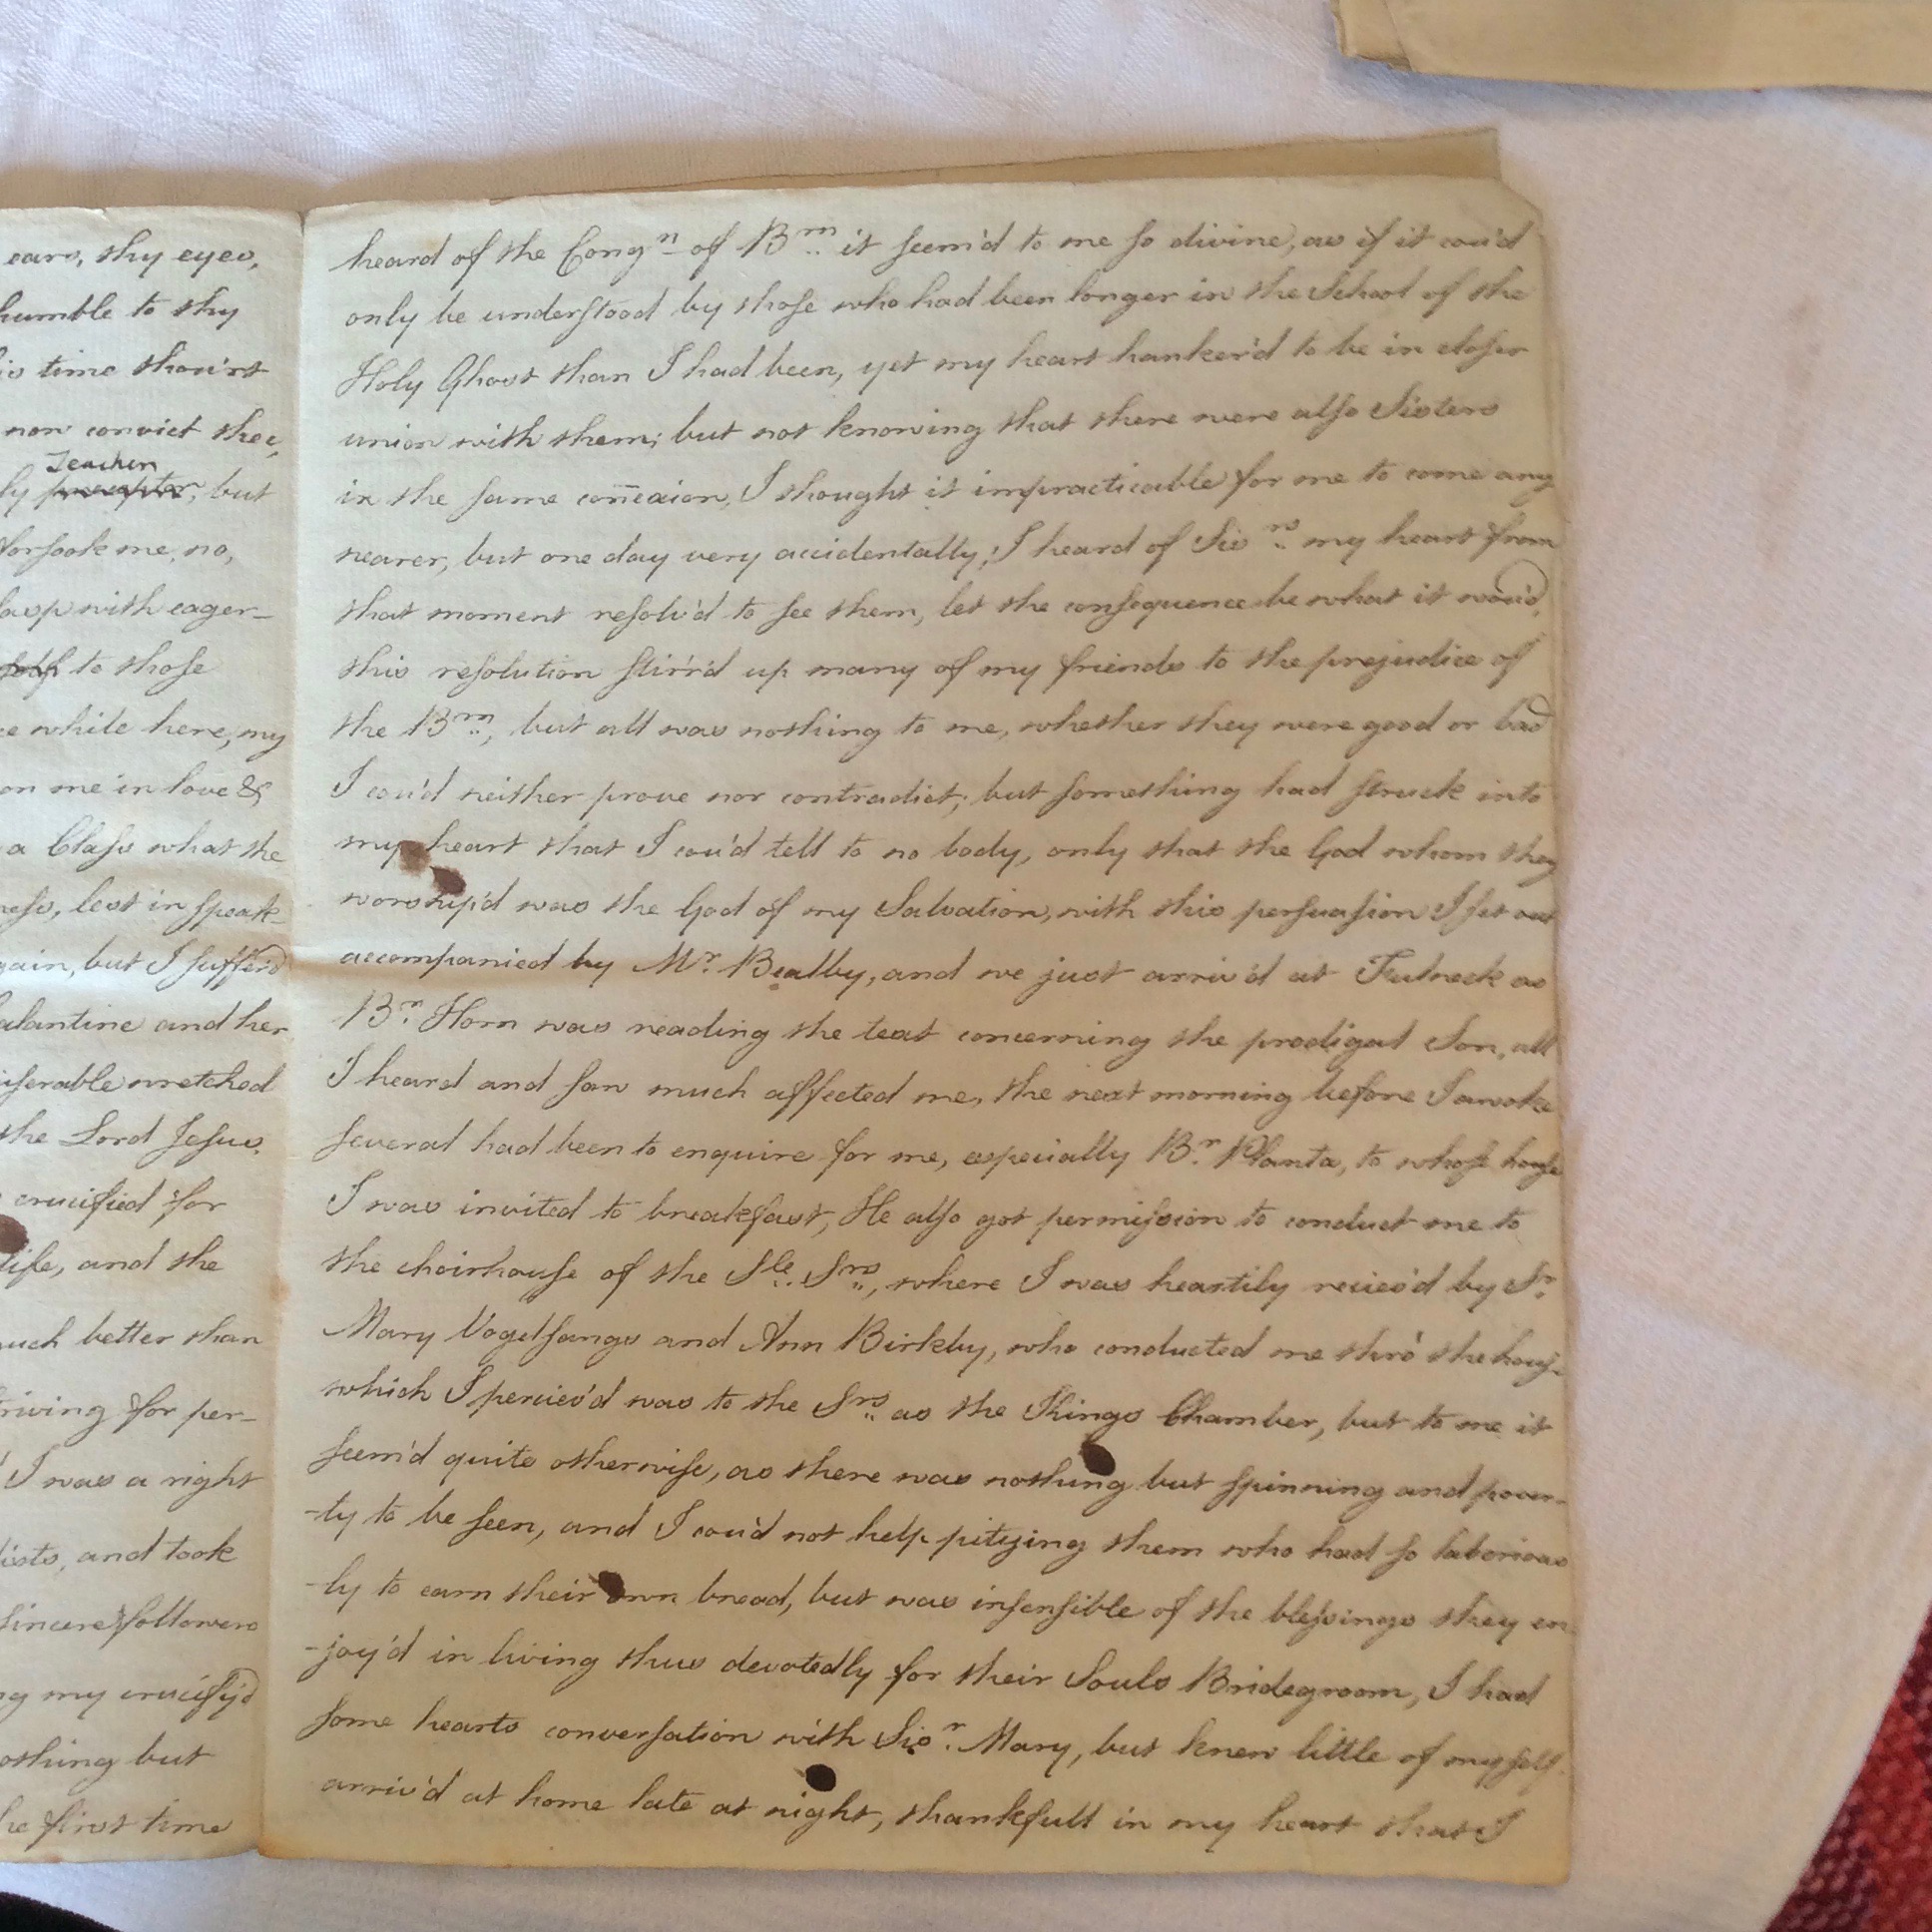 ears, thy eyes,
humble to thy
time thou'rt
now convict thee,
Teacher
ly preceptor, but
forsook me, no,
with eager-
to those
while here, my
on me in love &
a Class what the
lest in speak-
but I suffer'd
and her
wretched
the Lord Jesus.
crucified for
life, and the
much better than
for per-
I was a right
and took
sincere followers
my crucify'd
nothing but
he first time
heard of the Congn of Brn it seem'd to me so divine, as if it cou'd
only be understood by those who had been longer in the School of the
Holy Ghost than I had been, yet my heart hanker'd to be in closer
union with them; but not knowing that there were also Sisters
in the same conexion, I thought it impracticable for me to come any
nearer, but one day very accidentally, I heard of Sisrs my heart from
that moment resolv'd to see them, let the consequence be what it wou'd,
this resolution stirr'd up many of my friends to the prejudice of
the Brn, but all was nothing to me, whether they were good or bad
I cou'd neither prove nor contradict; but something had struck into
my heart that I cou'd tell to no body, only that the God whom they
worship'd was the God of my Salvation, with this persuasion I set out
accompanied by Mr. Bealby, and we just arriv'd at Fulneck as
Br. Horn was reading the text concerning the prodigal Son, all
I heard and saw much affected me, the next morning before I awoke
several had been to enquire for me, especially Br. Planta, to whose house
I was invited to breakfast, He also got permission to conduct me to
the choirhouse of the Sle. Srs, where I was heartily reciev'd by Sr.
Mary Vogelsangs and Ann Birkby, who conducted me thro' the house
which I perciev'd was to the Srs as the Kings Chamber, but to me it
seem'd quite otherwise, as there was nothing but spinning and pover-
-ty to be seen, and I cou'd not help pitying them who had so laborious
-ly to earn their own bread, but was insensible of the blessings they en
-joy'd in living thus devotedly for their Souls Bridegroom, I had
some hearts conversation with Sisr. Mary, but knew little of myself.
arriv'd at home late at night, thankfull in my heart that I